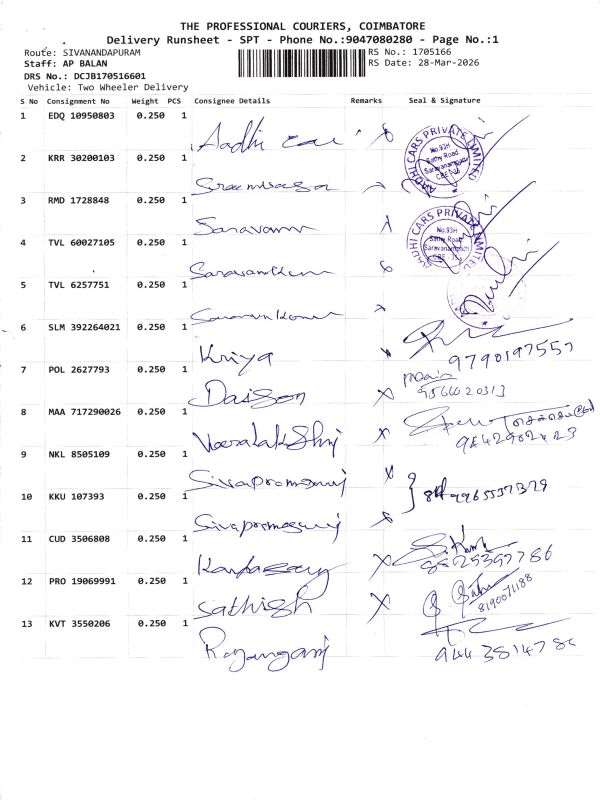 THE PROFESSIONAL COURIERS, COIMBATORE
Delivery Runsheet - SPT - Phone No.:9047080280 - Page No.:1
Route: SIVANANDAPURAM
RS No.: 1705166
Staff: AP BALAN
RS Date: 28-Mar-2026
DRS No.: DCJB170516601
Vehicle: Two Wheeler Delivery
S No Consignment No Weight PCS Consignee Details Remarks Seal & Signature
1 EDQ 10950803 0.250 1 Aadhi Car
AADHI CARS PRIVATE LIMITED
No.93H
Sathy Road
Saravanampatti
CBE - 35
2 KRR 30200103 0.250 1
3 RMD 1728848 0.250 1 Saravanan
AADHI CARS PRIVATE LIMITED
No.93H
Sathy Road
Saravanampatti
CBE - 35
4 TVL 60027105 0.250 1
5 TVL 6257751 0.250 1
6 SLM 392264021 0.250 1 Kriya
9790197557
7 POL 2627793 0.250 1 Daison
9566020313
8 MAA 717290026 0.250 1 Veeralakshmi
9442902423
9 NKL 8505109 0.250 1
10 KKU 107393 0.250 1
11 CUD 3506808 0.250 1
12 PRO 19069991 0.250 1 Sathish
8190071188
13 KVT 3550206 0.250 1